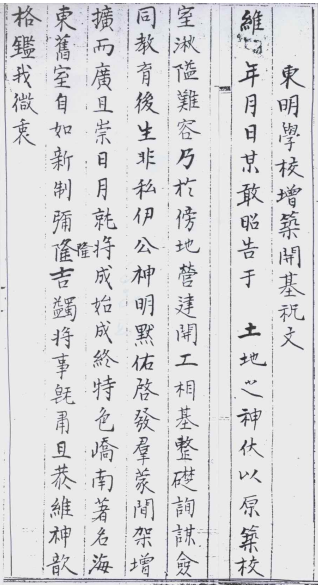 東明學校增築開基祝文
維 年月日某敢昭告于 土地之神伏以原築校
室湫隘難容乃於傍地營建開工相基整礎詢謀僉
同教育後生非私伊公神明默佑啓發羣蒙間架增
擴而廣且崇日月就將成始成終特色嶠南著名海
東舊室自如新制彌隆吉蠲將事毷甫且恭維神歆
格鑑我微衷